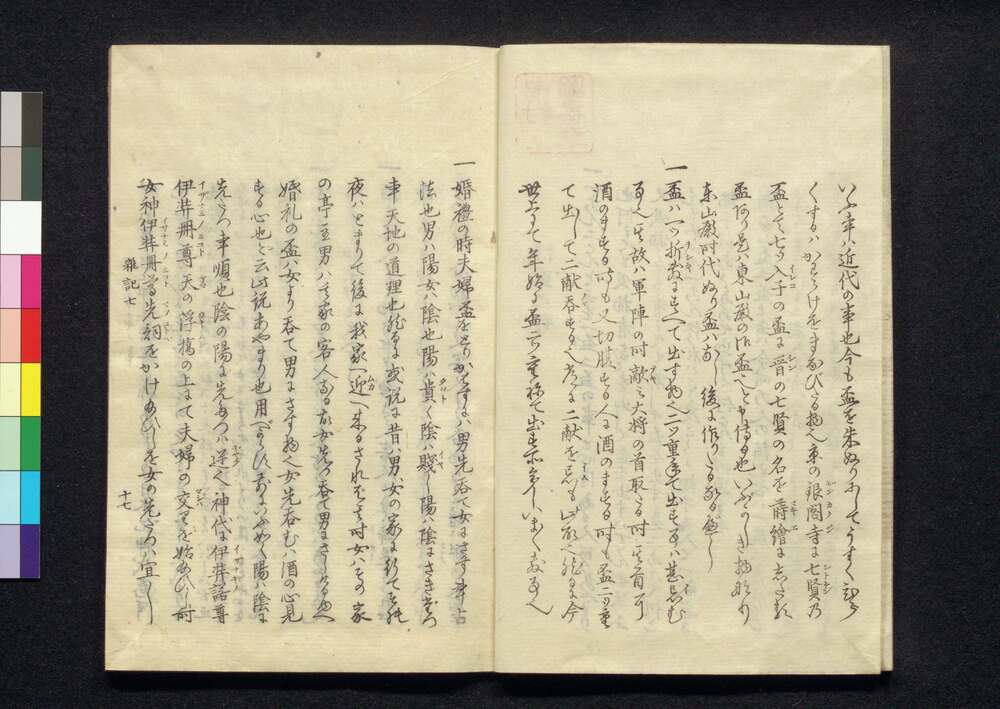 いふ事ハ近代の事也今も盃を朱ぬりにしてうすくひらくするハかはらけをまなびたる物也京の銀閣寺に七賢乃
盃とて七ツ入子の盃に晋の七賢の名を蒔絵にしたる
盃あり是ハ東山殿の御盃といひ傳る也いぶかしき物なり
東山殿时代ぬり盃ハなし後に作りたるなるべし
一盃ハ一ツ折敷にすへて出す物也二ツ重て出す事ハ甚忌む
事也其故ハ軍陣の时敵の大将の首取たる时其首に
酒のまする时も又切腹する人に酒のまする时も盃二ツ重
て出して二献呑する也常に二献を忌も此故也然るに今
世上にて年始の盃二ツ重ねて出す
一婚禮の時夫婦盃をとりかはすにハ男先呑て女にさす事古
法也男ハ陽女ハ陰也陽ハ貴く陰ハ賤し陽ハ陰にさき立つ
事天地の道理也然るに或説に昔ハ男女の家に行て
夜ハとまりて後に我家へ迎へ来るされバ其时女ハその家
の亭主男ハ其家の客人なる故女先呑て男にさしたる也
婚礼の盃ハ女より呑て男にさす物也女先呑むハ酒の心見
する心也と云此説あやまり也用べからす前にいふ如く陽ハ陰に
先たつ事順也陰の陽に先たつハ逆也神代に伊弉諾尊
伊弉冊尊天の浮橋の上にて夫婦の交を始め玉ひし时
女神伊弉冊尊先詞をかけ玉ひしを女の先たつハ宜し
雜記七
十七